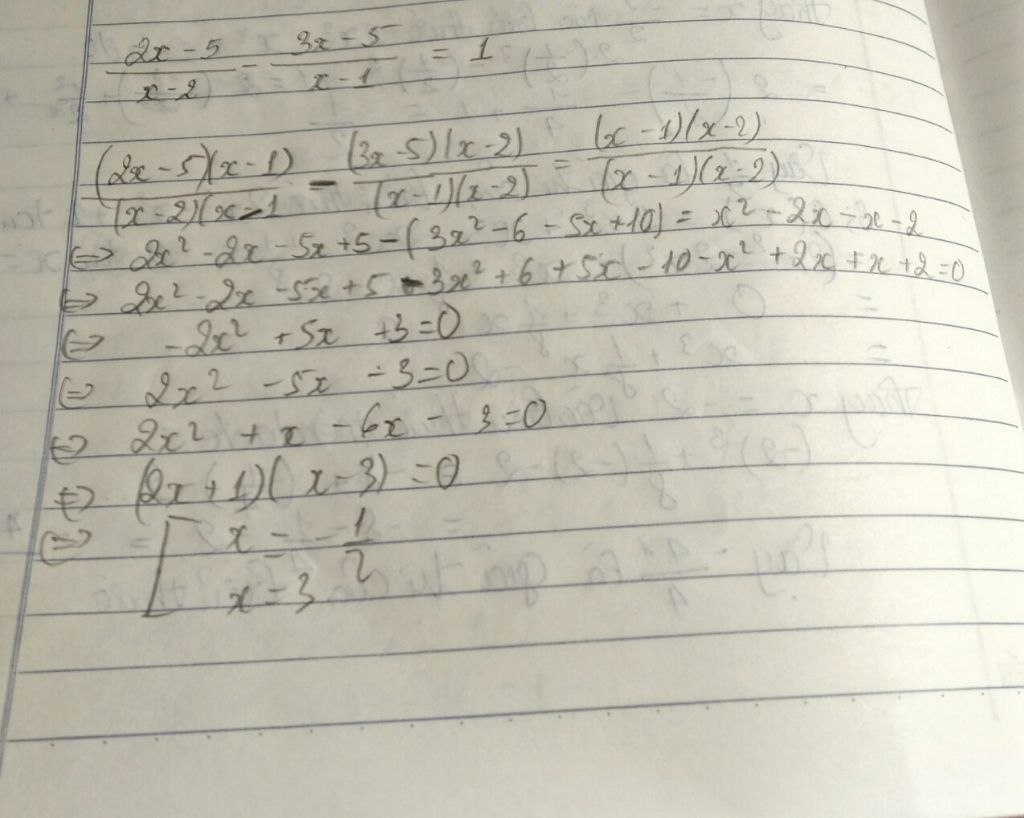 (2x - 5)/(x - 2) - (3x - 5)/(x - 1) = 1
((2x - 5)(x - 1))/((x - 2)(x - 1) - ((3x - 5)(x - 2))/((x - 1)(x - 2)) = ((x - 1)(x - 2))/((x - 1)(x - 2))
⇔ 2x² - 2x - 5x + 5 - (3x² - 6 - 5x + 10) = x² - 2x - x - 2
⇔ 2x² - 2x - 5x + 5 - 3x² + 6 + 5x - 10 - x² + 2x + x + 2 = 0
⇔ -2x² + 5x + 3 = 0
⇔ 2x² - 5x - 3 = 0
⇔ 2x² + x - 6x - 3 = 0
⇔ (2x + 1)(x - 3) = 0
⇔ [ x = -1/2
x = 3